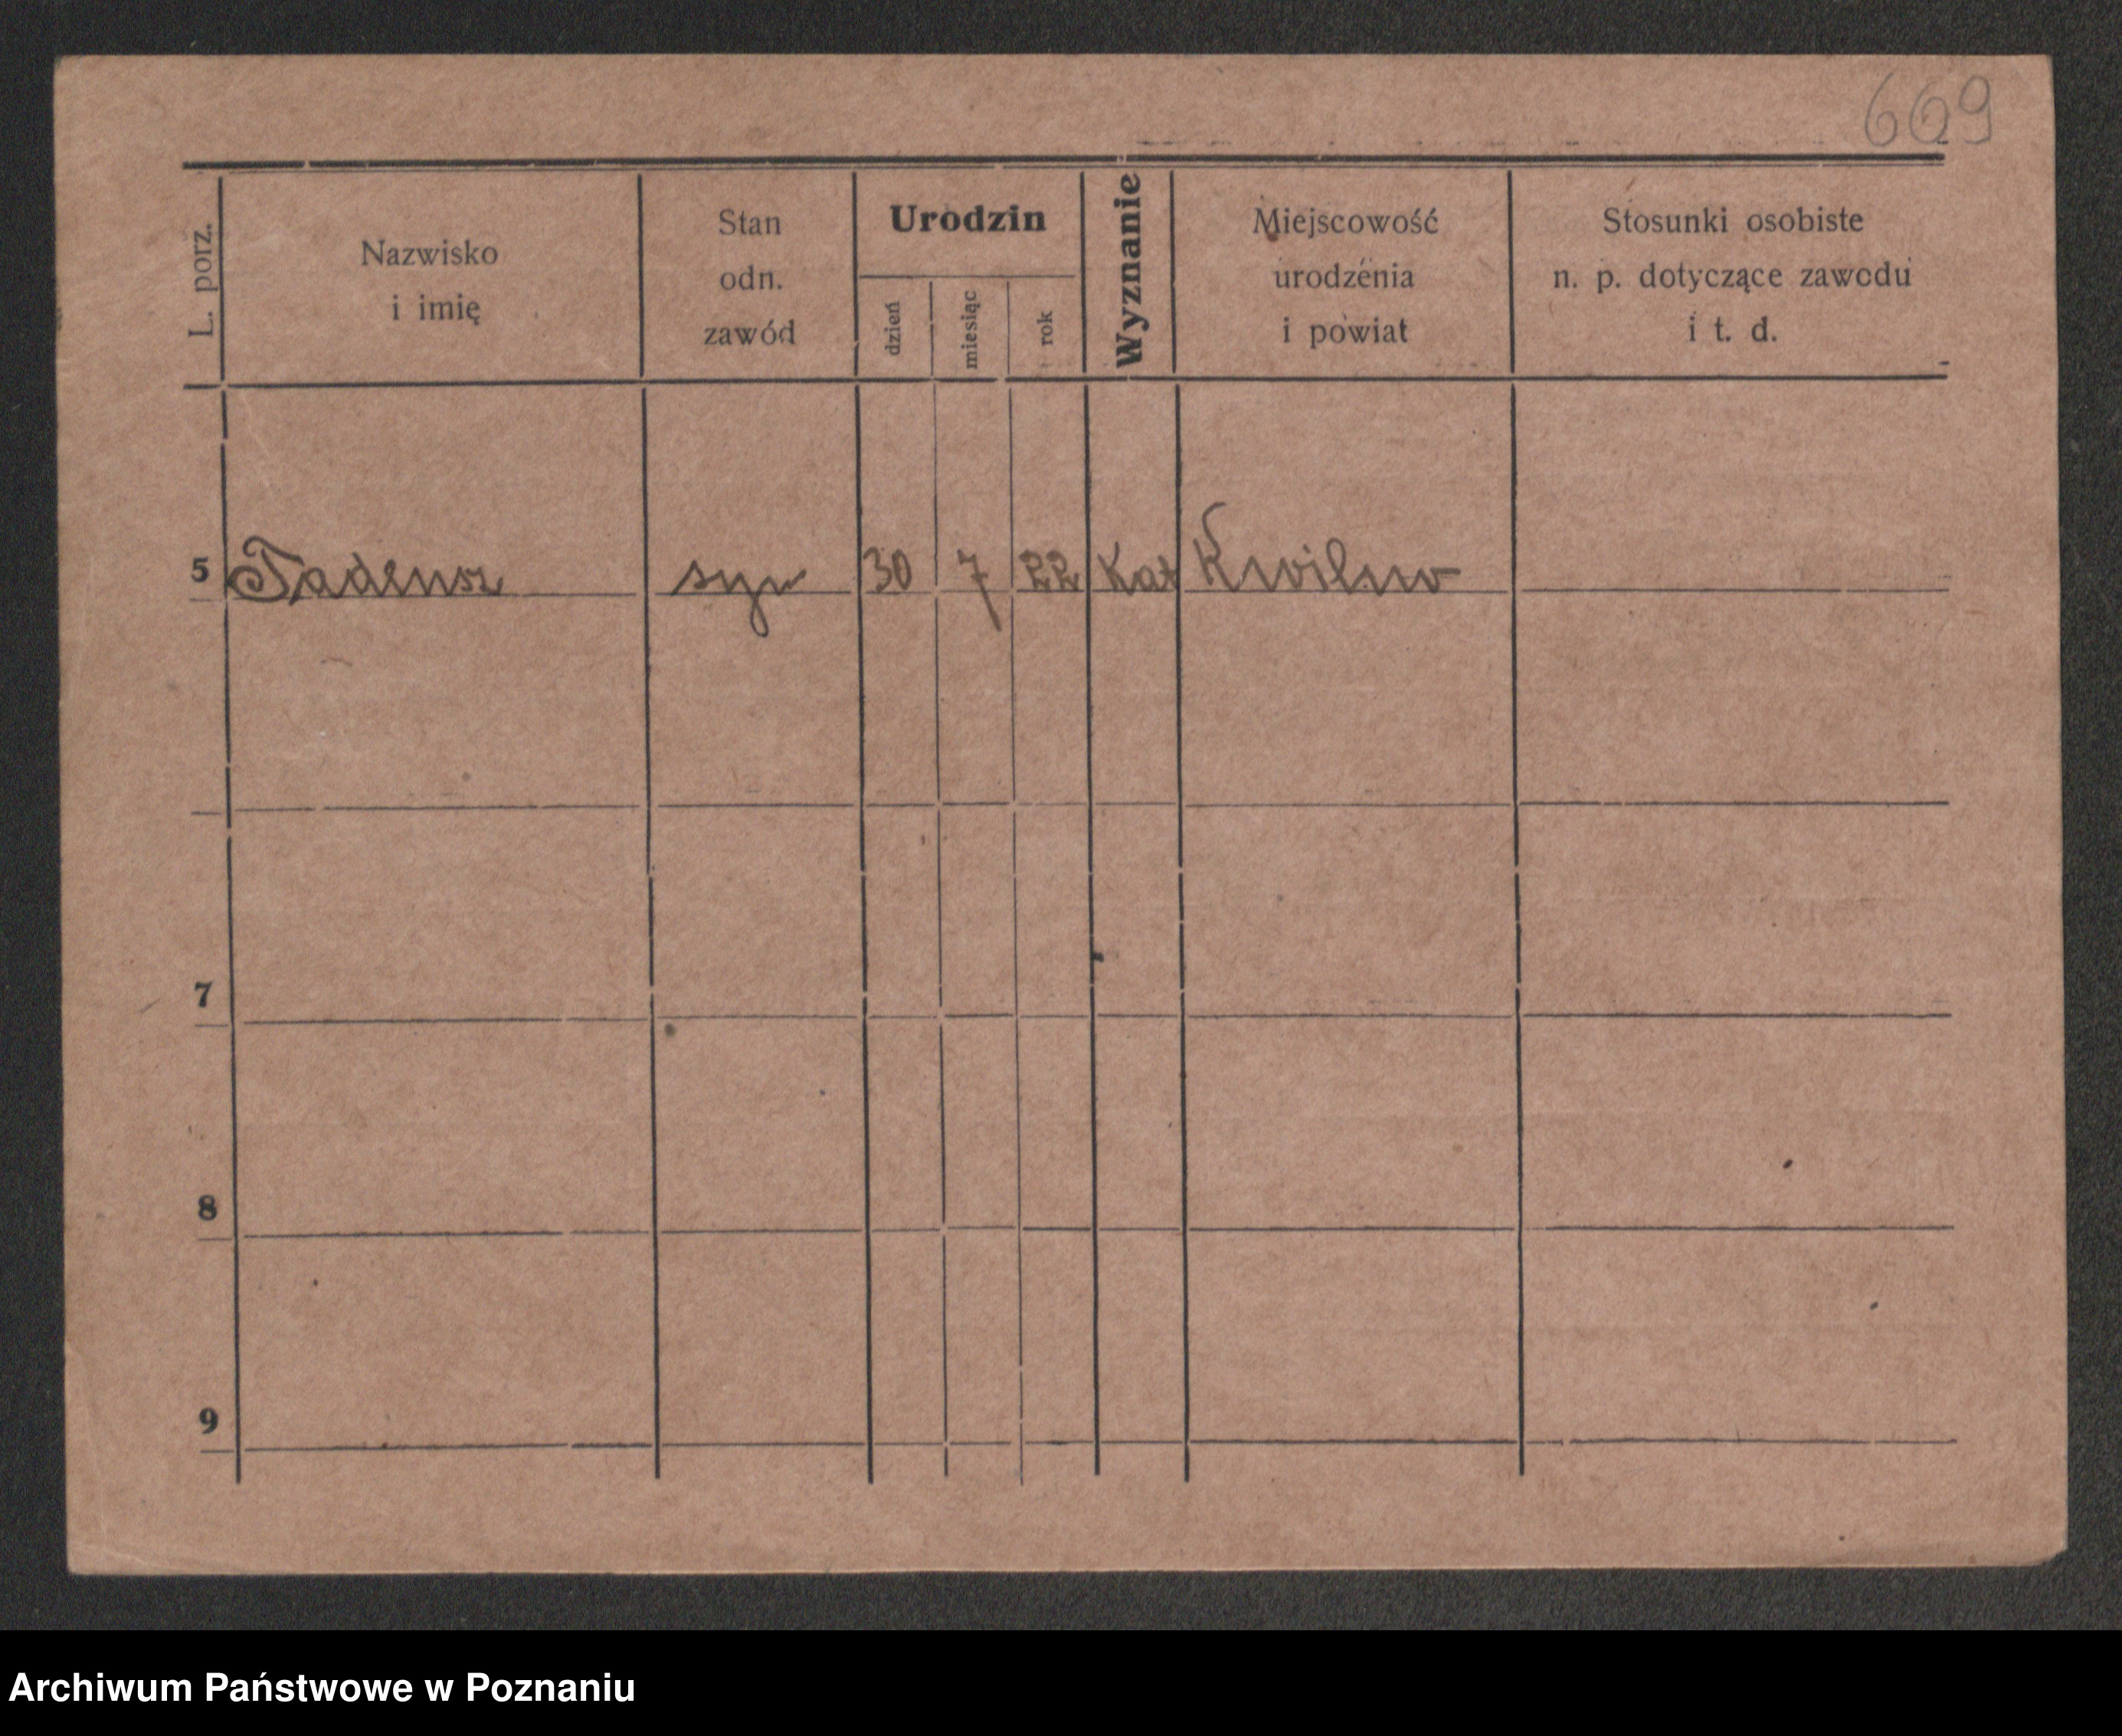 669
L. porz.
Nazwisko
i imię
Stan
odn.
zawód
Urodzin
dzień
miesiąc
rok
Wyznanie
Miejscowość
urodzenia
i powiat
Stosunki osobiste
n. p. dotyczące zawodu
i t. d.
5 Tadeusz syn 30 7 22 Kat Kwilcz
7
8
9
Archiwum Państwowe w Poznaniu